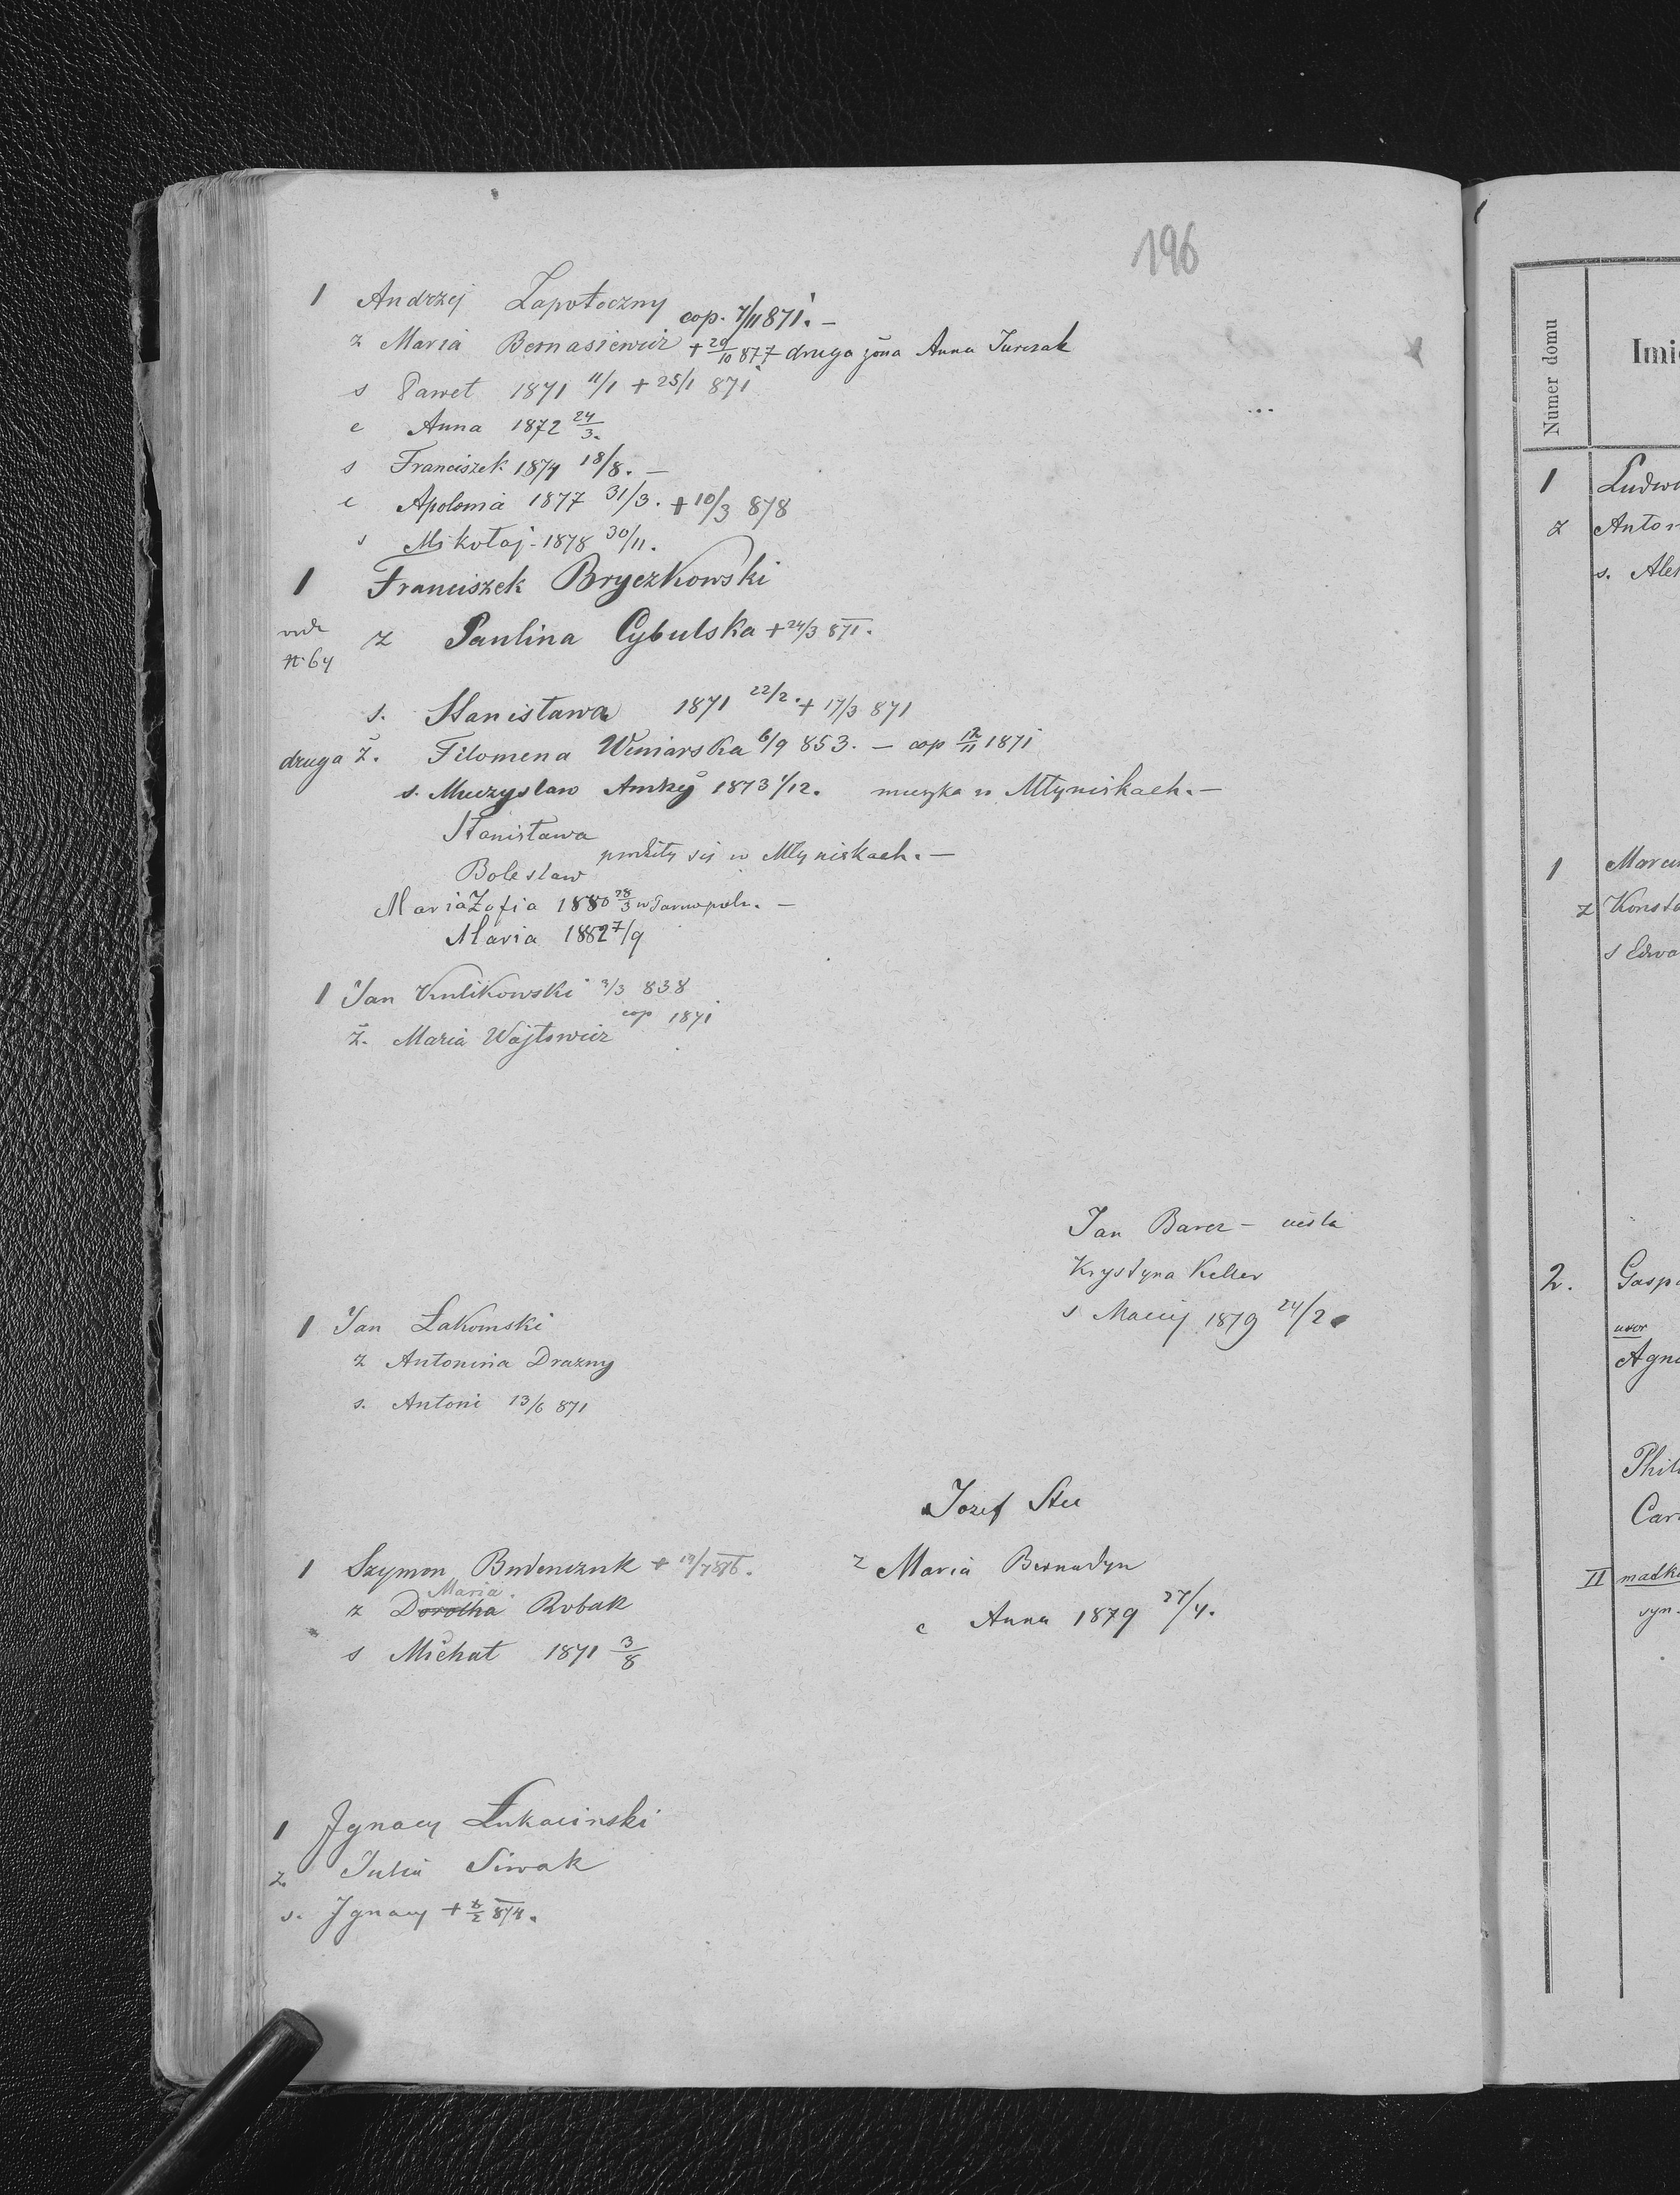 196
1 Andrzej Zapotoczny cop. 7/11 871. –
z Maria Bernasiewicz + 20/10 877 druga żona Anna Jurczak
s Paweł 1871 11/1 + 25/1 871
c Anna 1872 24/3.
s Franciszek 1874 18/8. –
c Apolonia 1877 31/3. + 10/3 878
s Mikołaj - 1878 30/11.
1 Franciszek Bryczkowski
vide z Paulina Cybulska + 24/3 871.
N 64
s. Stanisława 1871 22/2. + 17/3 871
druga ż. Filomena Winiarska 6/9 853. – cop 12/11 1871
s. Mieczyslaw 1873 1/12. w Młyniskach. –
Stanisława
Boleslaw się w Młyniskach. –
Maria Zofia 1880 28/3 w Tarnopolu. –
Maria 1882 7/9
1 Jan Kulikowski 3/3 838
cop 1871
ż. Maria Wojtowicz
Jan Barcz –
Krystyna Keller
s Maciej 1879 24/2
1 Jan Łakomski
z Antonina Drazny
s. Antoni 13/6 871
Jozef Stec
z Maria Bernadyn
c Anna 1879 27/4.
1 Szymon Budenczuk + 876.
Maria
z Dorotha Robak
s Michał 1871 3/8
1 Ignacy Łukacinski
z. Julia Siwak
s. Ignacy +
Numer domu
Imi
1 Ludwi
z Anton
s. Alek
1 Marcin
z Konsta
s Edwa
2. Gaspa
uxor
Agni
Phili
Car
II matka
syn